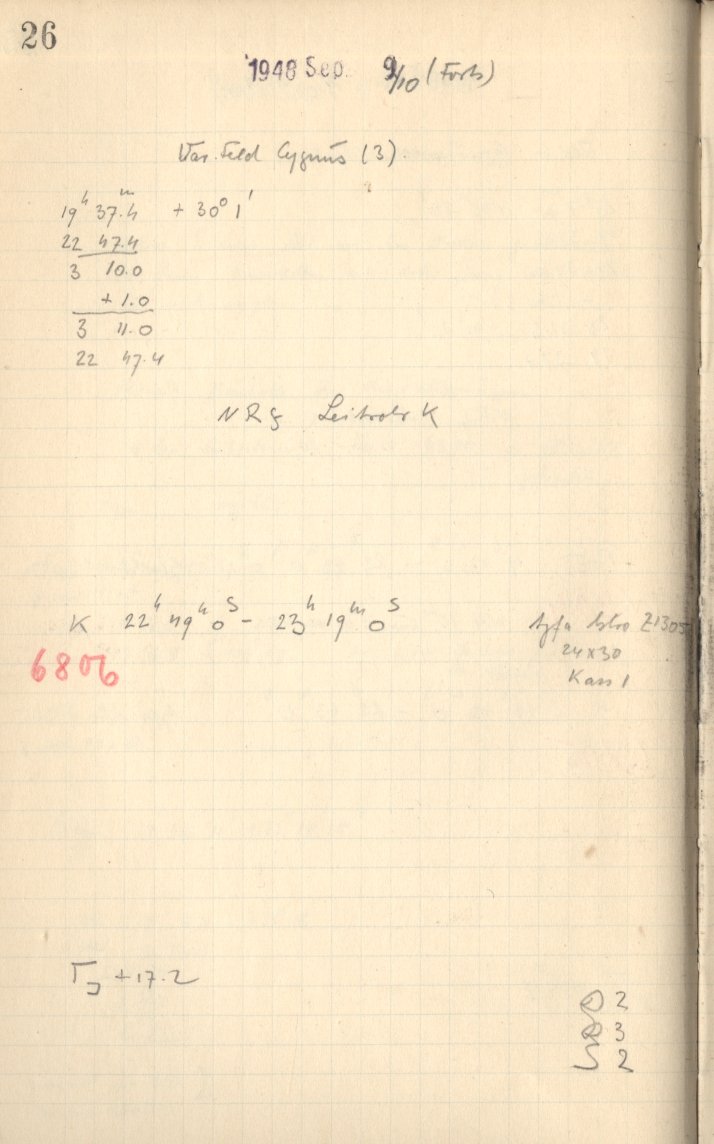 26
1948 Sep. 9/10 (Forts)
Var. Feld Cygnus (3)
19ʰ 37.4ᵐ + 30° 1'
22 47.4
3 10.0
+ 1.0
3 11.0
22 47.4
Leitrohr K
K 22ʰ 49ᵐ 0ˢ - 23ʰ 19ᵐ 0ˢ
Agfa Astro Z1305
24x30
Kass 1
6806
+17.2
2
3
2